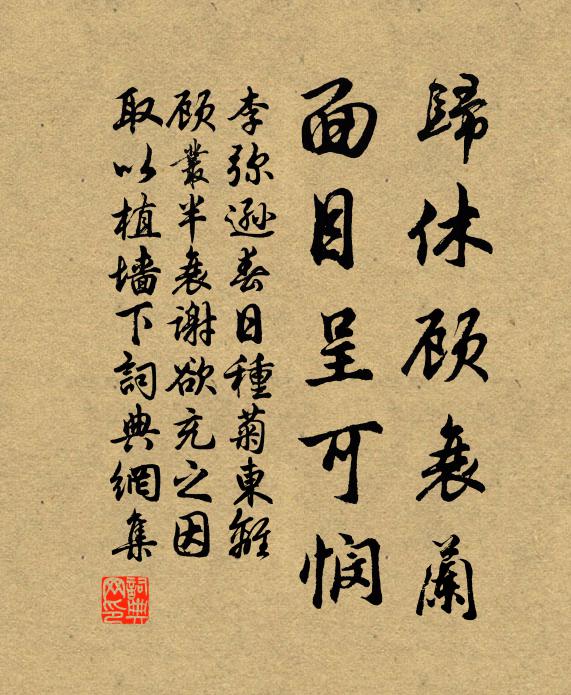 歸休顧衰蘭
面目呈可憫
李弥遜春日種菊東籬
顧叢半衰謝欲充之因
取以植墻下詞典網集
詞典网印